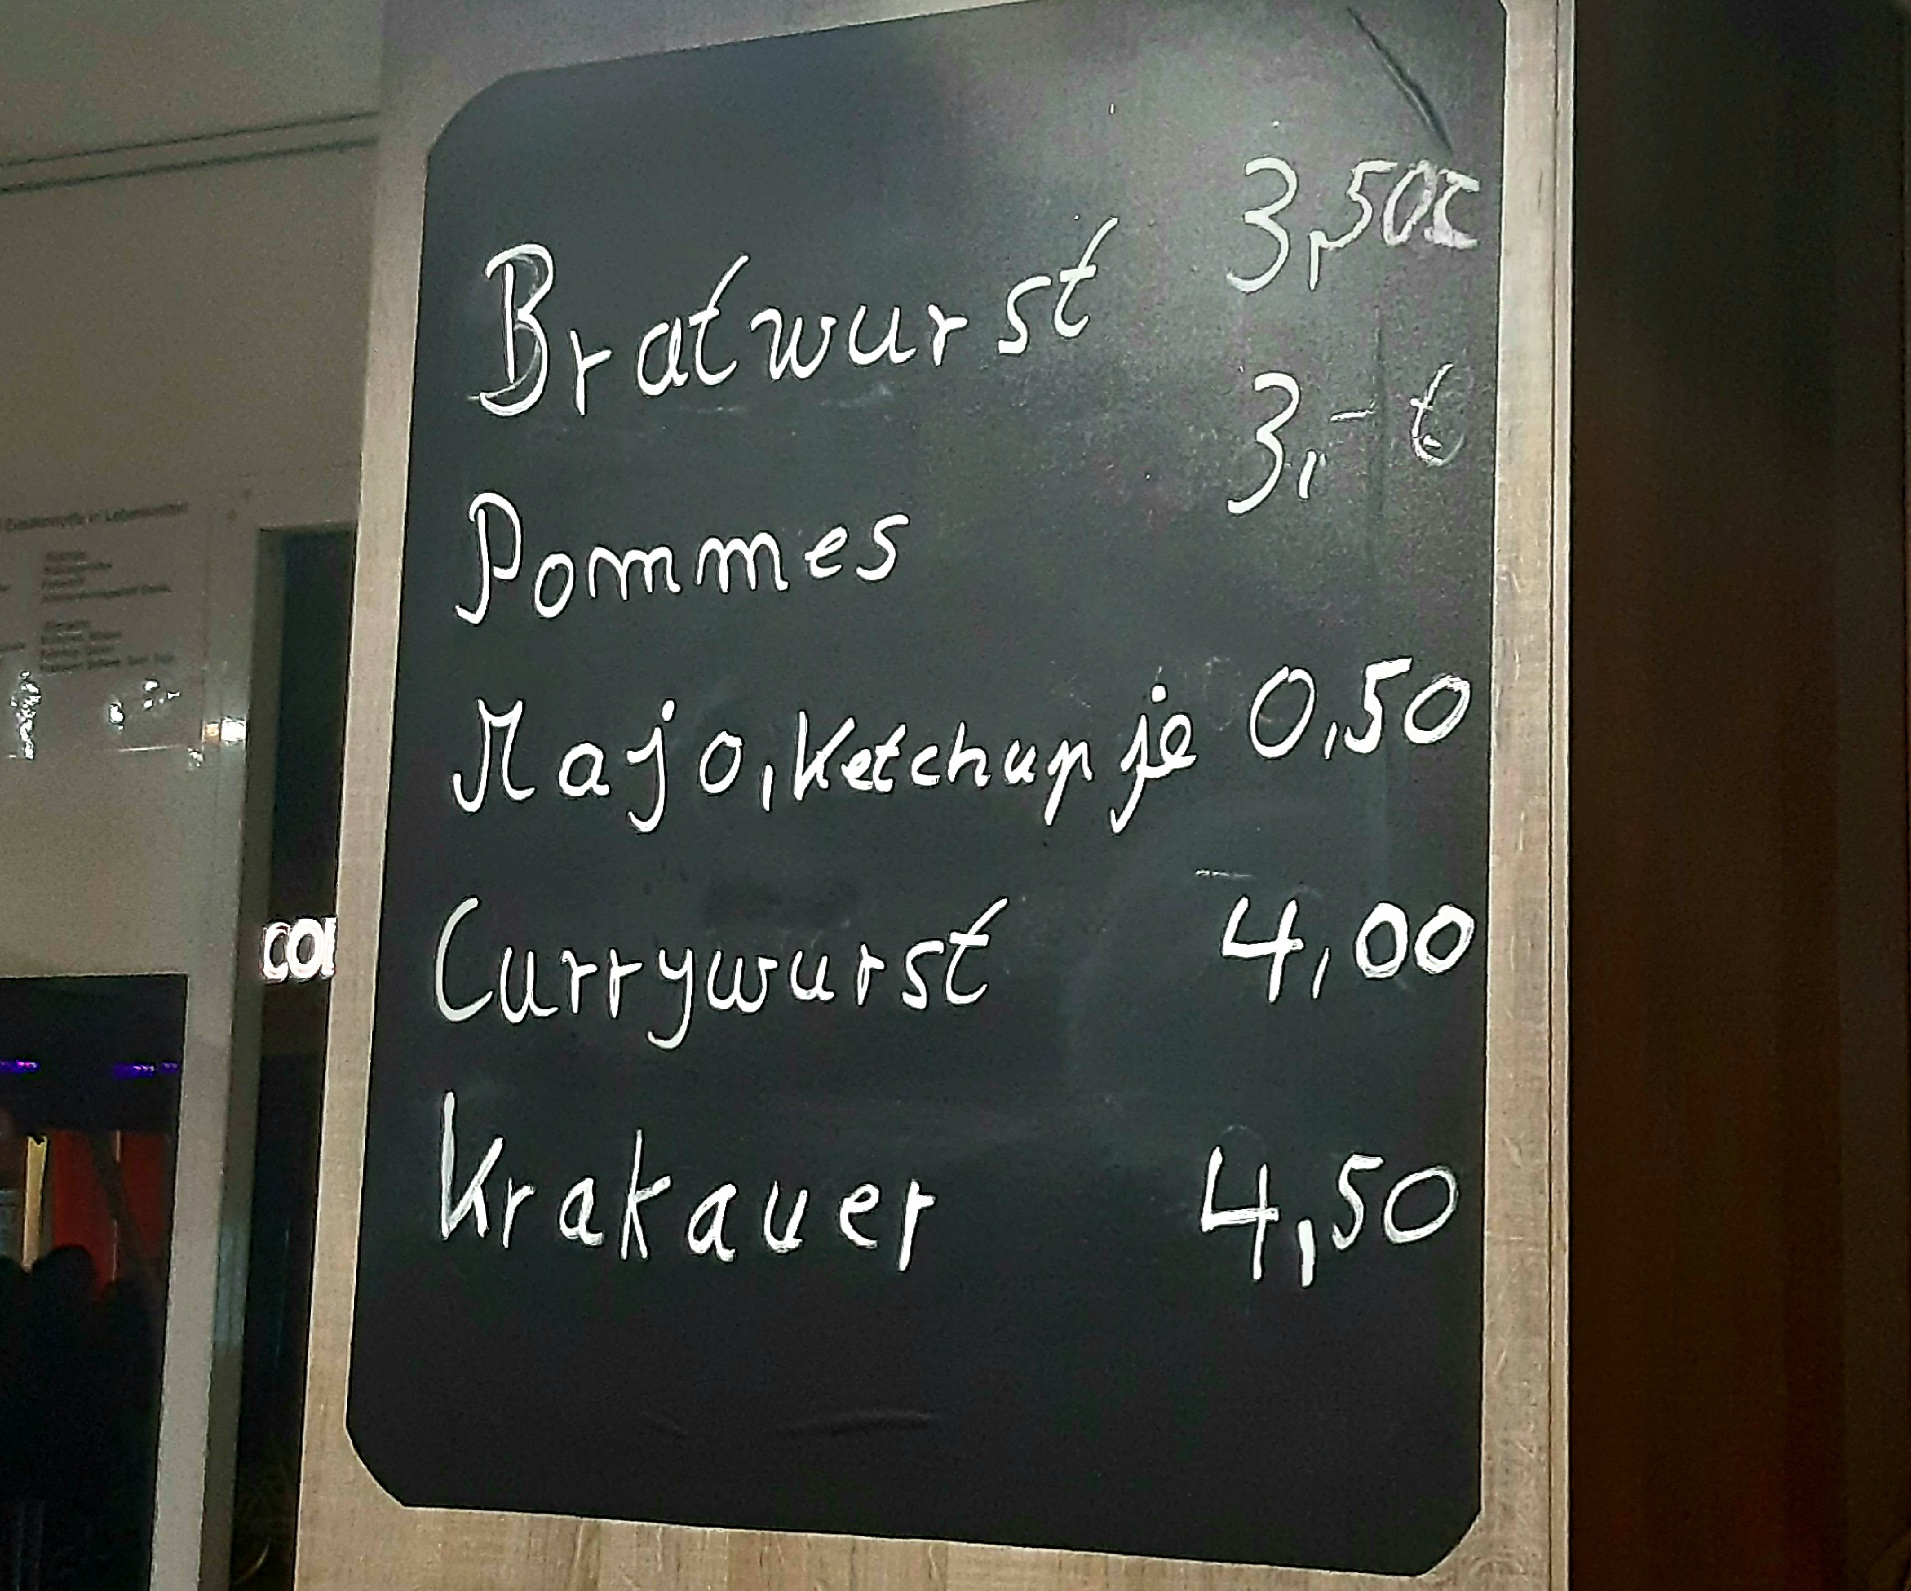 Bratwurst 3,50€
Pommes 3,- €
Majo, Ketchup je 0,50
Currywurst 4,00
Krakauer 4,50